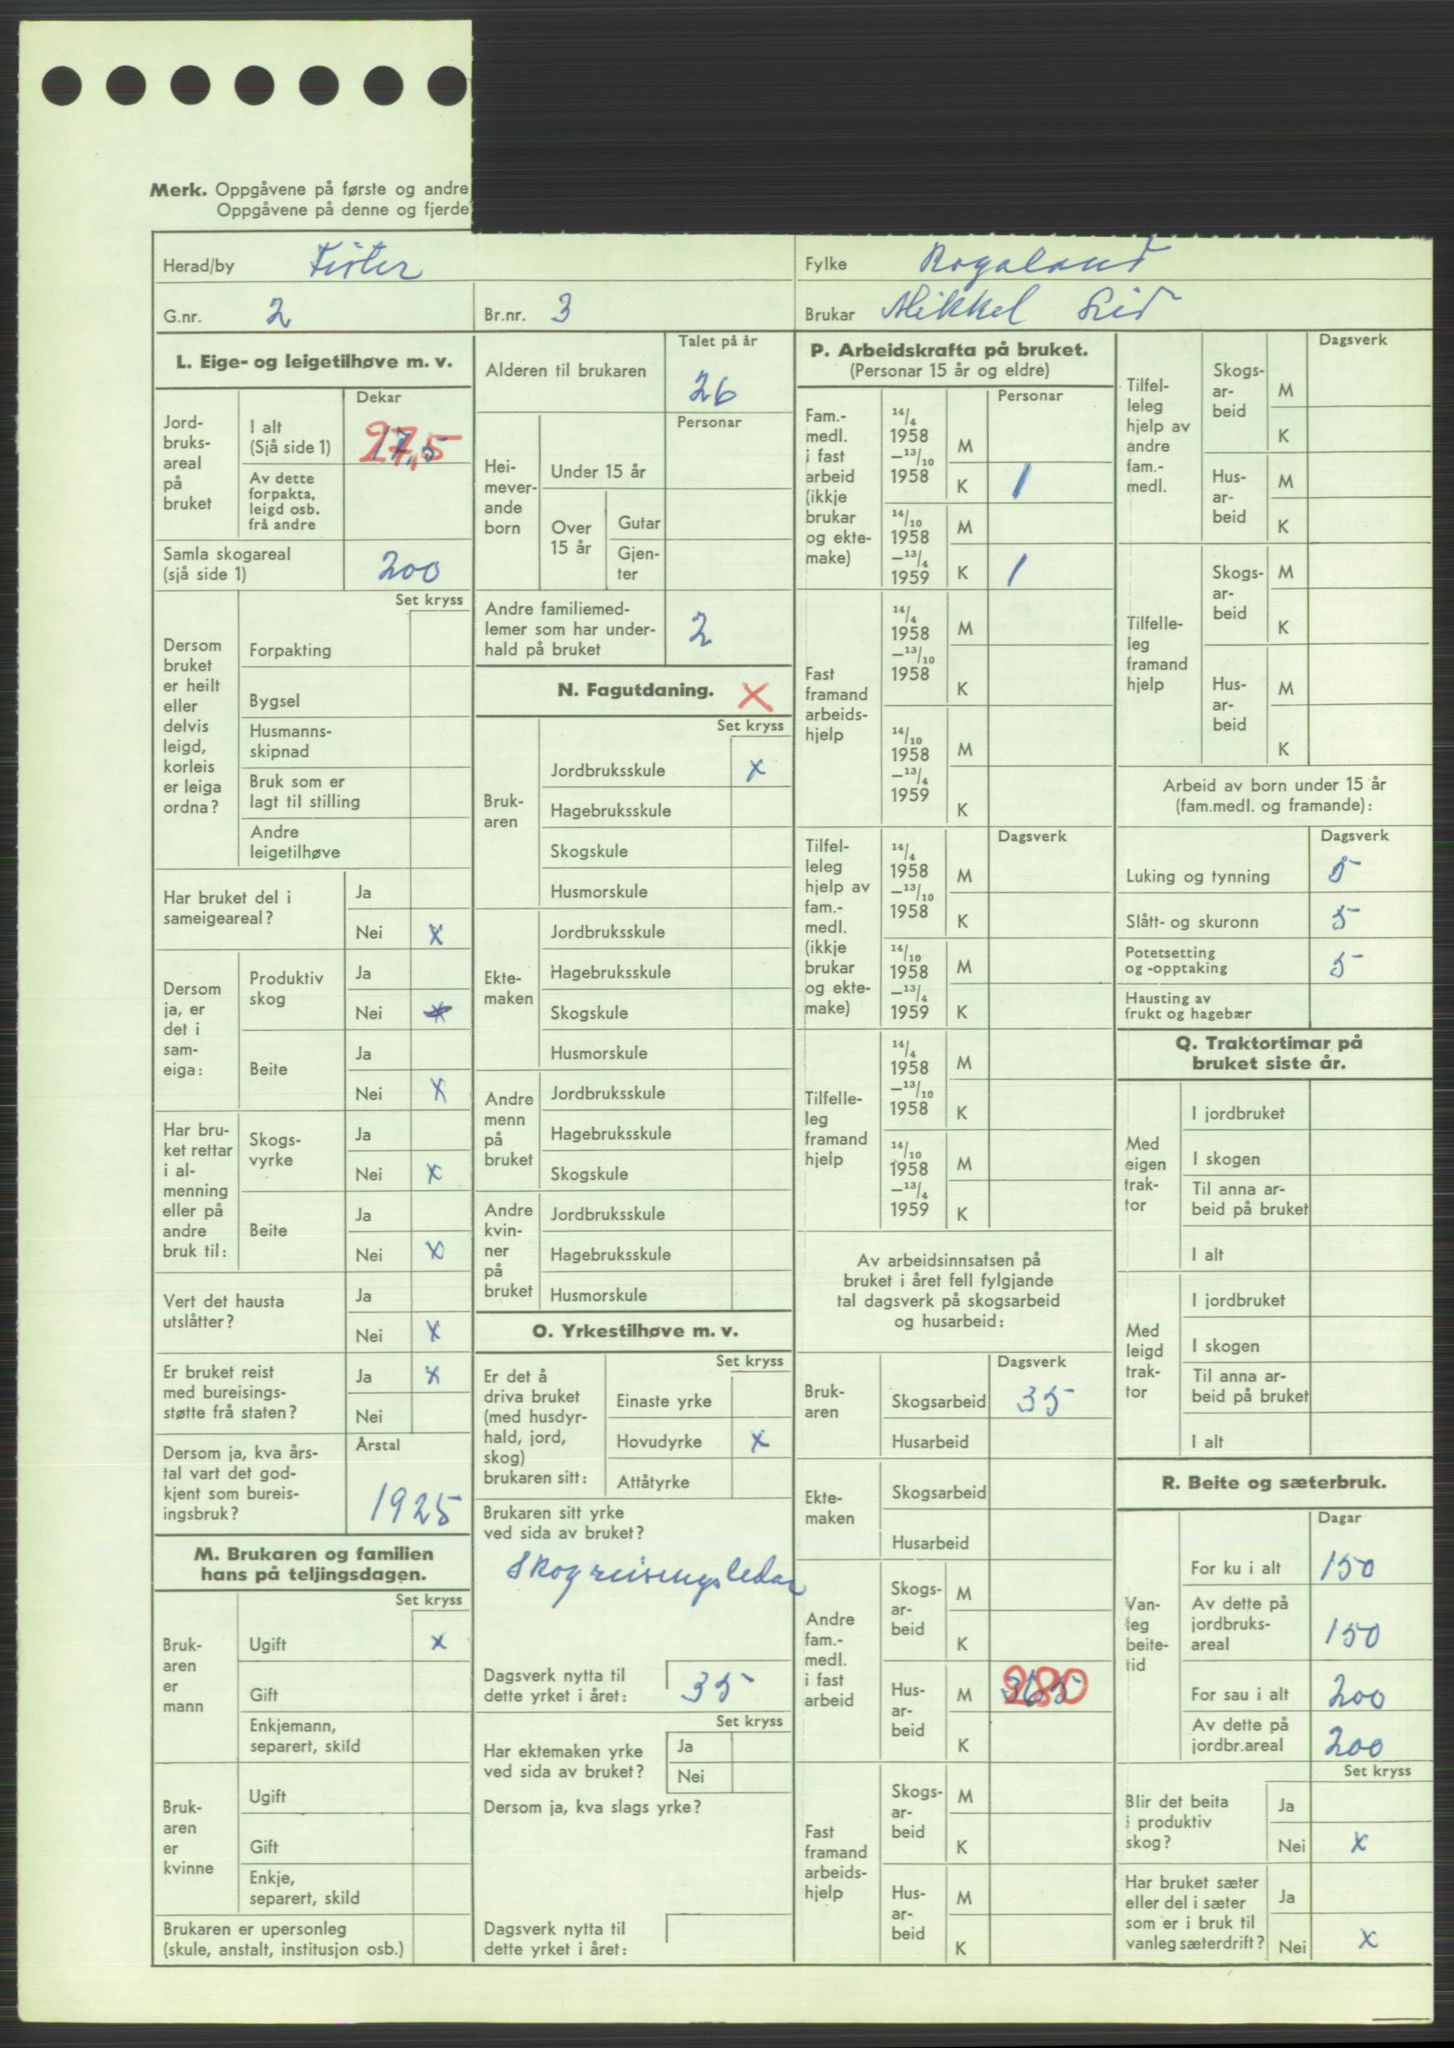 Merk. Oppgåvene på første og andre
Oppgåvene på denne og fjerde
Herad/by Fister
Fylke Rogaland
G.nr. 2
Br.nr. 3
Brukar Mikkel Lid
L. Eige- og leigetilhøve m. v.
Dekar
Jord-
bruks-
areal
på
bruket
I alt
(Sjå side 1)
27,5
Av dette
forpakta,
leigd osb.
frå andre
Samla skogareal
(sjå side 1)
200
Set kryss
Dersom
bruket
er heilt
eller
delvis
leigd,
korleis
er leiga
ordna?
Forpakting
Bygsel
Husmanns-
skipnad
Bruk som er
lagt til stilling
Andre
leigetilhøve
Har bruket del i
sameigeareal?
Ja
Nei x
Dersom
ja, er
det i
sam-
eiga:
Produktiv
skog
Ja
Nei x
Beite
Ja
Nei x
Har bru-
ket rettar
i al-
menning
eller på
andre
bruk til:
Skogs-
vyrke
Ja
Nei x
Beite
Ja
Nei x
Vert det hausta
utslåtter?
Ja
Nei x
Er bruket reist
med bureisings-
støtte frå staten?
Ja x
Nei
Dersom ja, kva års-
tal vart det god-
kjent som bureis-
ingsbruk?
Årstal
1925
M. Brukaren og familien
hans på teljingsdagen.
Set kryss
Bruk-
aren
er
mann
Ugift x
Gift
Enkjemann,
separert, skild
Bruk-
aren
er
kvinne
Ugift
Gift
Enkje,
separert, skild
Brukaren er upersonleg
(skule, anstalt, institusjon osb.)
Talet på år
Alderen til brukaren 26
Personar
Hei-
mever-
ande
born
Under 15 år
Over
15 år
Gutar
Gjen-
ter
Andre familiemed-
lemer som har under-
hald på bruket
2
N. Fagutdaning. X
Set kryss
Bruk-
aren
Jordbruksskule x
Hagebruksskule
Skogskule
Husmorskule
Ekte-
maken
Jordbruksskule
Hagebruksskule
Skogskule
Husmorskule
Andre
menn
på
bruket
Jordbruksskule
Hagebruksskule
Skogskule
Andre
kvin-
ner
på
bruket
Jordbruksskule
Hagebruksskule
Husmorskule
O. Yrkestilhøve m. v.
Set kryss
Er det å
driva bruket
(med husdyr-
hald, jord,
skog)
brukaren sitt:
Einaste yrke
Hovudyrke x
Attåtyrke
Brukaren sitt yrke
ved sida av bruket?
Skogreisingsledar
Dagsverk nytta til
dette yrket i året:
35
Set kryss
Har ektemaken yrke
ved sida av bruket?
Ja
Nei
Dersom ja, kva slags yrke?
Dagsverk nytta til
dette yrket i året:
P. Arbeidskrafta på bruket.
(Personar 15 år og eldre)
Personar
Fam.-
medl.
i fast
arbeid
(ikkje
brukar
og ekte-
make)
14/4
1958
—13/10
1958
M
K 1
14/10
1958
—13/4
1959
M
K 1
Fast
framand
arbeids-
hjelp
14/4
1958
—13/10
1958
M
K
14/10
1958
—13/4
1959
M
K
Dagsverk
Tilfel-
leleg
hjelp av
fam.-
medl.
(ikkje
brukar
og ekte-
make)
14/4
1958
—13/10
1958
M
K
14/10
1958
—13/4
1959
M
K
Tilfelle-
leg
framand
hjelp
14/4
1958
—13/10
1958
M
K
14/10
1958
—13/4
1959
M
K
Av arbeidsinnsatsen på
bruket i året fell fylgjande
tal dagsverk på skogsarbeid
og husarbeid:
Dagsverk
Bruk-
aren
Skogsarbeid 35
Husarbeid
Ekte-
maken
Skogsarbeid
Husarbeid
Andre
fam.-
medl.
i fast
arbeid
Skogs-
ar-
beid
M
K
Hus-
ar-
beid
M 280
K
Fast
framand
arbeids-
hjelp
Skogs-
ar-
beid
M
K
Hus-
ar-
beid
M
K
Dagsverk
Tilfel-
leleg
hjelp av
andre
fam.-
medl.
Skogs-
ar-
beid
M
K
Hus-
ar-
beid
M
K
Tilfelle-
leg
framand
hjelp
Skogs-
ar-
beid
M
K
Hus-
ar-
beid
M
K
Arbeid av born under 15 år
(fam.medl. og framande):
Dagsverk
Luking og tynning 5
Slått- og skuronn 5
Potetsetting
og -opptaking 5
Hausting av
frukt og hagebær
Q. Traktortimar på
bruket siste år.
Med
eigen
trak-
tor
I jordbruket
I skogen
Til anna ar-
beid på bruket
I alt
Med
leigd
trak-
tor
I jordbruket
I skogen
Til anna ar-
beid på bruket
I alt
R. Beite og sæterbruk.
Dagar
Van-
leg
beite-
tid
For ku i alt 150
Av dette på
jordbruks-
areal 150
For sau i alt 200
Av dette på
jordbr.areal 200
Set kryss
Blir det beita
i produktiv
skog?
Ja
Nei x
Har bruket sæter
eller del i sæter
som er i bruk til
vanleg sæterdrift?
Ja
Nei x